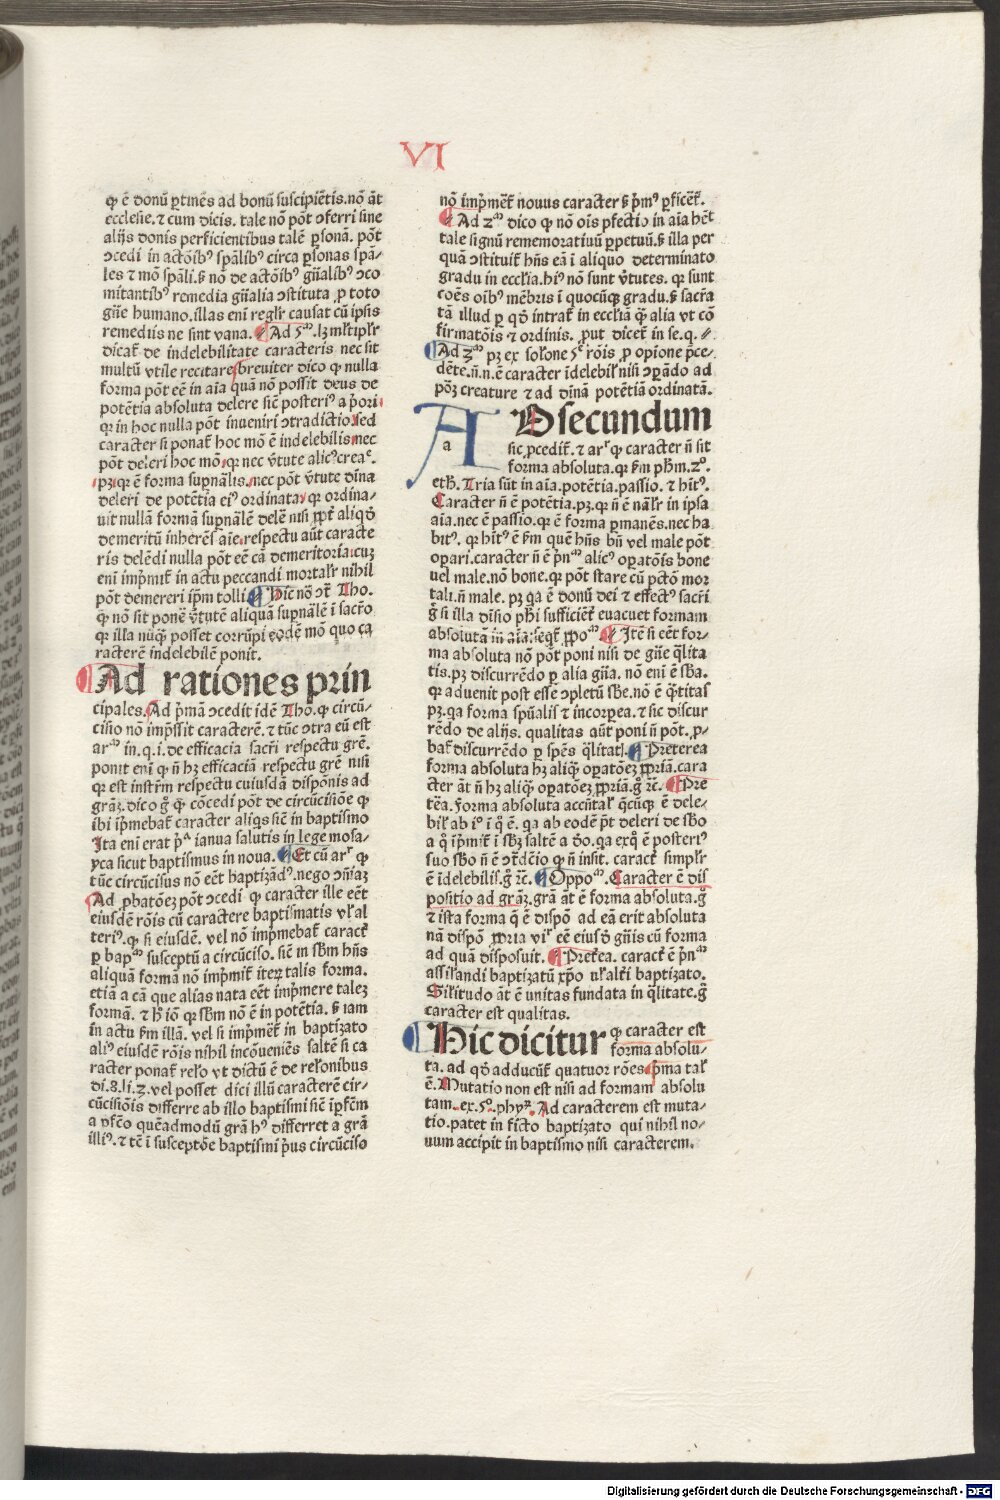 VI
ꝙ ē donū ꝑtinēs ad bonū suscipiētis. nō āt
ecclesie. ⁊ cum dicis. tale nō pōt ↄferri sine
alijs donis perficientibus talē ꝑsonā. pōt
ↄcedi in actōibꝰ spālibꝰ circa ꝑsonas spā⸗
les ⁊ mō spāli. ꝫ nō de actōibꝰ gn̄alibꝰ ↄco
mitantibꝰ remedia gn̄alia ↄstituta ꝓ toto
gn̄e humano. illas enī causat cū ipsis
remediis ne sint vana. Ad 5ᵐ. lꝫ
dicat̄ de indelebilitate caracteris nec sit
multū vtile recitare breuiter dico ꝙ nulla
forma pōt eē in aīa quā nō possit deus de
potētia absoluta delere sic̄ posteriꝰ a p̄ori
qꝛ in hoc nulla pōt inueniri ↄtradictio. sed
caracter si ponat̄ hoc mō ē indelebilis nec
pōt deleri hoc mō. qꝛ nec v̄tute
pꝫ. qꝛ ē forma sup̄nālis. nec pōt v̄tute dīna
deleri de potētia eiꝰ ordinata. qꝛ ordina⸗
uit nullā formā sup̄nālē delē nisi aliqd̄
demeritū inherēs aīe. respectu aūt caracte
ris delēdi nulla pōt eē cā demeritoria. cuꝫ
enī imp̄mit̄ in actu peccandi mortalr̄ nihil
pōt demereri ip̄m tolli. Hic nō ↄt̄ Tho.
ꝙ nō sit ponē v̄tutē aliquā sup̄nālē ī sacr̄o
qꝛ illa nūꝙ posset corrūpi eodē mō quo ca
racterē indelebilē ponit.
Ad rationes prin
cipales. Ad p̄mā ↄcedit idē Tho. ꝙ circū⸗
cisio nō imp̄ssit caracterē. ⁊ tūc ↄtra eū est
arᵐ in. q. i. de efficacia sacr̄i respectu grē.
ponit enī ꝙ n̄ hꝫ efficaciā respectu grē nisi
qꝛ est instr̄m respectu cuiusdā dispōnis ad
gr̄aꝫ. dico ḡ ꝙ cōcedi pōt de circūcisiōe ꝙ
ibi īp̄mebat̄ caracter aliqs sic̄ in baptismo
Ita enī erat pᵃ ianua salutis in lege mosa⸗
yca sicut baptismus in noua. Et cū arʳ ꝙ
tūc circūcisus nō eēt baptizādꝰ. nego ↄn̄aꝫ
Ad ꝓbatōeꝫ pōt ↄcedi ꝙ caracter ille eēt
eiusdē rōis cū caractere baptismatis vl̄ al
teriꝰ. ꝙ si eiusdē. vel nō imp̄mebat̄ caract̄
ꝑ bapᵐ susceptū a circūciso. sic̄ in sb̄m hn̄s
aliquā formā nō imp̄mit̄ iteꝝ talis forma.
etiā a cā que alias nata eēt imp̄mere taleꝫ
formā. ⁊ h̄ iō qꝛ sb̄m nō ē in potētia. ꝫ iam
in actu ẜm illā. vel si imp̄mēt in baptizato
aliꝰ eiusdē rōis nihil incōueniēs saltē si ca
racter ponat̄ rel̄o vt dictū ē de rel̄onibus
di. 8. li. 2. vel posset dici illū caracterē cir⸗
cūcisiōis differre ab illo baptismi sic̄ īp̄fc̄m
a ꝑfc̄o quēadmodū grā hꝰ differret a grā
illiꝰ. ⁊ tē ī susceptōe baptismi p̄us circūciso
nō imp̄mēt novus caracter ꝫ p̄mꝰ ꝑficēt̄.
Ad 2ᵐ dico ꝙ nō oīs ꝑfectio in aīa hēt
tale signū rememoratiuū ꝑpetuū. ꝫ illa per
quā ↄstituit̄ hn̄s eā ī aliquo determinato
gradu in eccl̄ia. hiꝰ nō sunt v̄tutes. qꝛ sunt
cōes oībꝰ mēbris ī quocūqꝫ gradu. ꝫ sacr̄a
tā illud ꝑ qd̄ intrat̄ in eccl̄iā ꝙ̄ alia vt cō
firmatōis ⁊ ordinis. ꝓut dicet̄ in se. q.
Ad 3ᵐ pꝫ ex sol̄one 5ᵉ rōis ꝓ opione p̄ce⸗
dēte. n̄. n. ē caracter īdelebil̄ nisi ↄꝑādo ad
pōꝫ creature ⁊ ad dīnā potētiā ordinatā.
AD secundum
a
sic ꝓcedit̄. ⁊ arʳ ꝙ caracter n̄ sit
forma absoluta. qꝛ ẜm ph̄m. 2°.
eth̄. Tria sūt in aīa. potētia. passio. ⁊ hītꝰ.
Caracter n̄ ē potētia. pꝫ. qꝛ n̄ ē nāl̄r in ipsa
aīa. nec ē passio. qꝛ ē forma ꝑmanēs. nec ha
bitꝰ. qꝛ hītꝰ ē ẜm quē hn̄s bn̄ vel male pōt
oꝑari. caracter n̄ ē pⁿᵐ alicꝰ oꝑatōis bone
uel male. nō bone. qꝛ pōt stare cū pctō mor
tali. n̄ male. pꝫ qa ē donū dei ⁊ effectꝰ sacr̄i
ḡ si illa dīsio ph̄i sufficiēt̄ euacuet formam
absolutā in aīa. seqt̄ Itē si eēt for⸗
ma absoluta nō pōt poni nisi de gn̄e q̄lita
tis. pꝫ discurrēdo ꝑ alia gn̄a. nō enī ē sb̄a.
qꝛ aduenit post esse ↄpletū sb̄e. nō ē q̄titas
pꝫ. qa forma spūalis ⁊ incorpea. ⁊ sic discur
rēdo de alijs. qualitas aūt poni n̄ pōt. ꝓ⸗
bat̄ discurrēdo ꝑ spēs q̄litatꝭ. Preterea
forma absoluta hꝫ aliqꝫ oꝑatōeꝫ ꝓpriā. cara
cter āt n̄ hꝫ aliqꝫ oꝑatōeꝫ ꝓpriā. ḡ ⁊c̄. Pre
tēa. forma absoluta accn̄tal̄ q̄cūqꝫ ē dele⸗
bil̄ ab i° ī q° ē. qa ab eodē p̄t deleri de sb̄o
a q° īp̄mit̄ ī sb̄ꝫ saltē a d̄o. qa exq° ē posteriꝰ
suo sb̄o n̄ ē ↄt̄dc̄io ꝙ n̄ insit. caract̄ simpl̄r
ē īdelebilis. ḡ ⁊c̄. Oppoᵐ. Caracter ē dis
positio ad gr̄aꝫ. grā āt ē forma absoluta. ḡ
⁊ ista forma q̄ ē dispō ad eā erit absoluta
nā dispō ꝓpria viʳ eē eiusd̄ gn̄is cū forma
ad quā disposuit. Pret̄ea. caract̄ ē pⁿᵐ
assil̄andi baptizatū xp̄o vl̄ alt̄i baptizato.
Sil̄itudo āt ē unitas fundata in q̄litate. ḡ
caracter est qualitas.
Hic dicitur ꝙ caracter est
forma absolu⸗
ta. ad qd̄ adducūt̄ quatuor rōes p̄ma tal̄
ē. Mutatio non est nisi ad formam absolu
tam. ex. 5°. phyꝝ. Ad caracterem est muta⸗
tio. patet in ficto baptizato qui nihil no⸗
uum accipit in baptismo nisi caracterem.
Digitalisierung gefördert durch die Deutsche Forschungsgemeinschaft - DFG